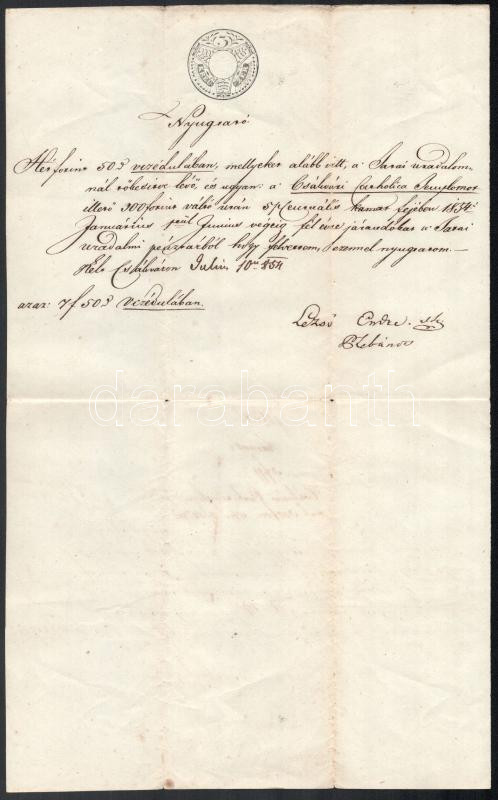 3
Nyugtató
Hét forint 50 d vizédulában, mellyeket alább irtt, a Tarai uradalom-
nál töketve levő, és ugyan: a Csábvári Catholica Templomot
illető 300 forint váltó után 5 p/Centuális kamat fejében 1854
Januárius Junius végeig fél évre járandóban a Tarai
uradalmi pénztárból hogy felvettem, ezennel nyugtatom. —
Kelt Csábváron Julius 10én 854
azaz: 7 f 50 d vizédulában.
Endre
Plébános
darabanth